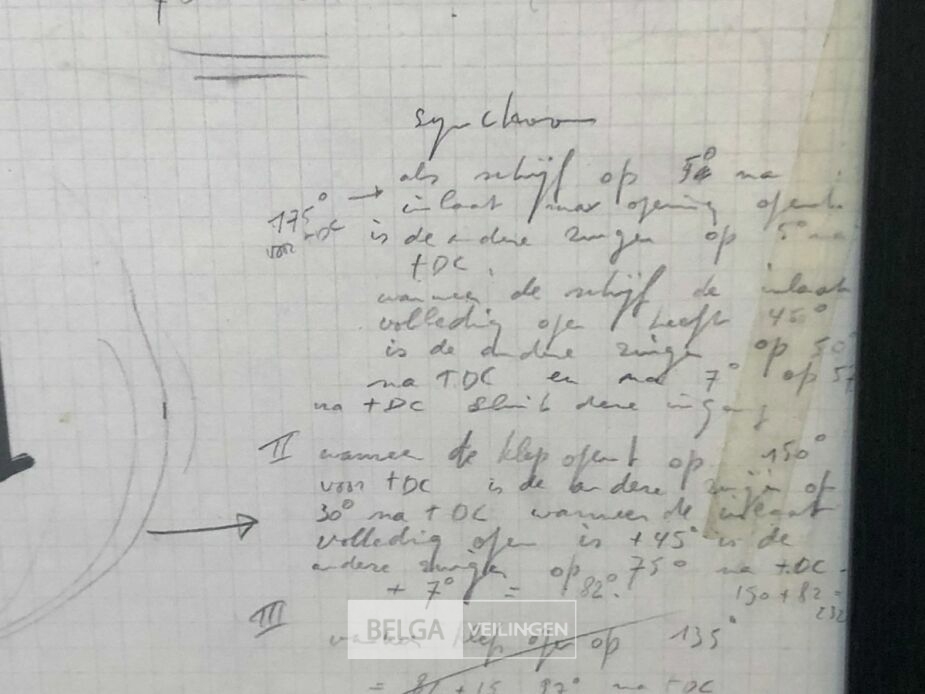 synchroon
als schijf op 5° na
175° → inlaat max opening opent
voor TDC is de andere zuiger op 5° na
TDC.
wanneer de schijf de inlaat
volledig open heeft 45°
is de andere zuiger op 50
na TDC en na 7° op 57
na TDC sluit deze ingang
II wanneer de klep opent op 150°
voor TDC is de andere zuiger op
30° na TDC wanneer de inlaat
volledig open is +45° is de
andere zuiger op 75° na TDC.
+ 7° = 82°. 150 + 82 =
232
III klep open op 135°
BELGA VEILINGEN
= 82 + 15 97° na TDC